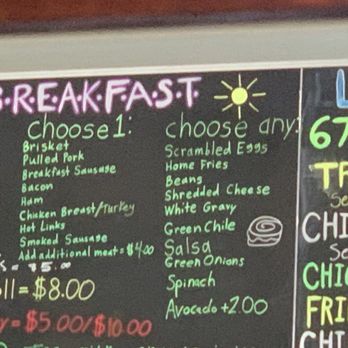 BREAKFAST
Choose 1:
Brisket
Pulled Pork
Breakfast Sausage
Bacon
Ham
Chicken Breast/Turkey
Hot Links
Smoked Sausage
Add additional meat = $4.00
= $5.00
ll = $8.00
y = $5.00/$10.00
choose any:
Scrambled Eggs
Home Fries
Beans
Shredded Cheese
White Gravy
Green Chile
Salsa
Green Onions
Spinach
Avocado +2.00
67
CHI
CHI
FRI
CHI